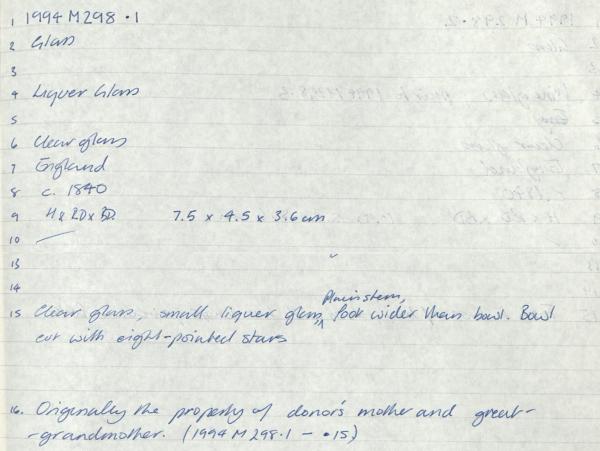 1 1994 M 298 · 1
2 Glass
3
4 Liquer Glass
5
6 Clear glass
7 England
8 c. 1840
9 H x RD x BD. 7.5 x 4.5 x 3.6 cm
10 —
13
14
Plain stem,
15 Clear glass, small liquer glass, foot wider than bowl. Bowl
cut with eight-pointed stars
16. Originally the property of donor's mother and great-
-grandmother. (1994 M 298.1 - .15)